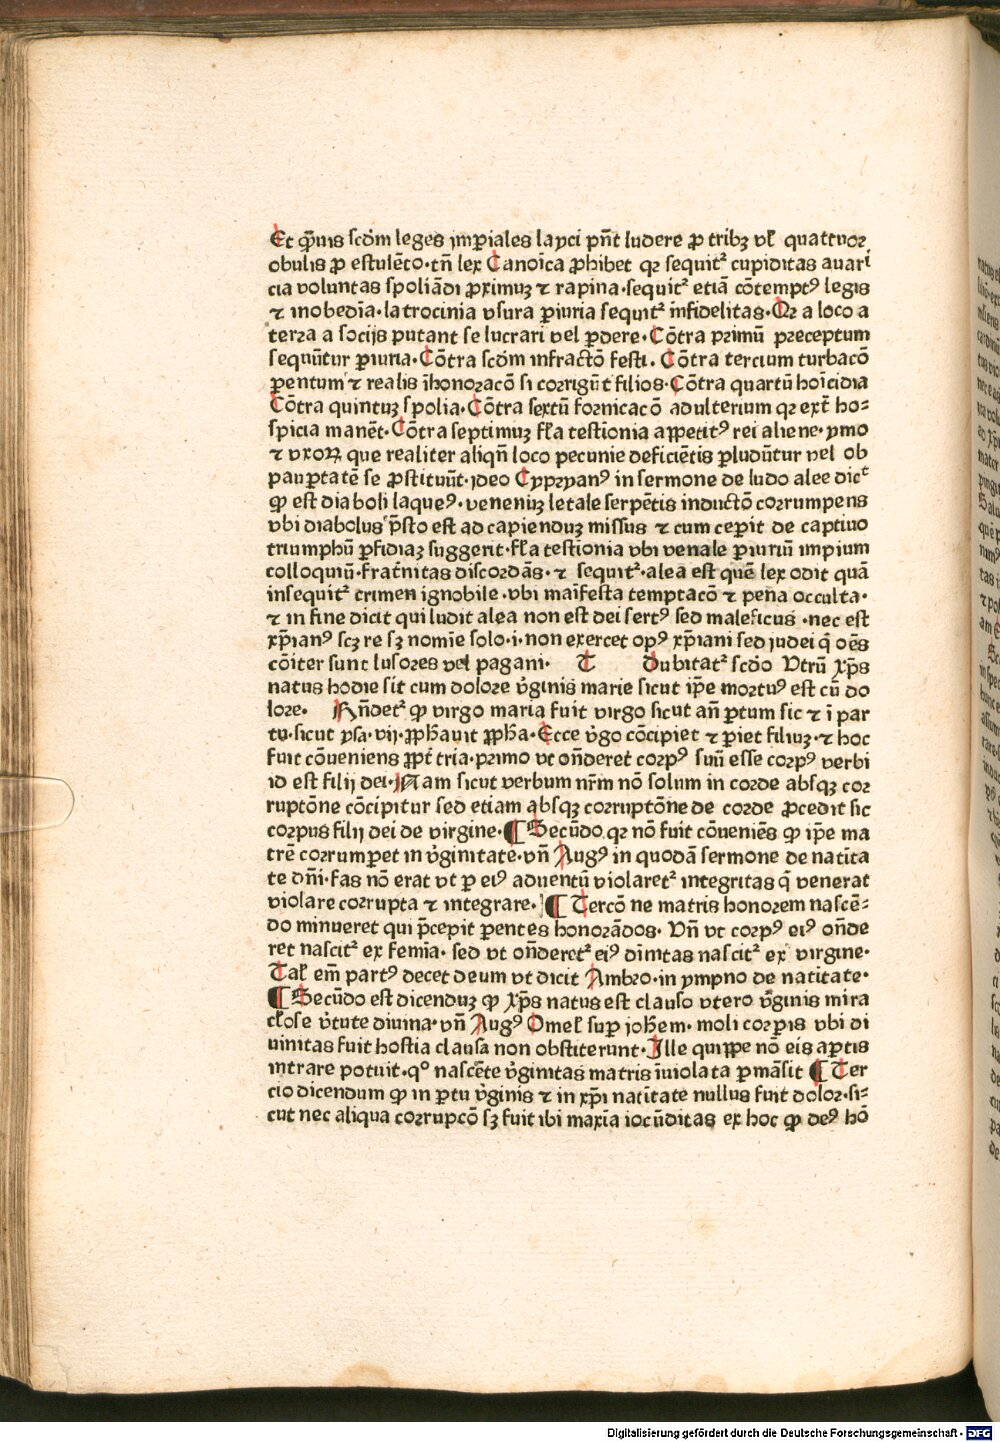 Et qͣ̄uis scd̄m leges imꝑiales layci pn̄t ludere ꝓ tribꝫ vl̕ quattuoꝛ
obulis ꝓ estulēto·tn̄ lex Canoīca ꝓhibet qꝛ sequit᷑ cupiditas auari
cia voluntas spoliādi ꝓximuꝫ ⁊ rapina·sequit᷑ etiā cōtemptꝰ legis
⁊ inobedīa·latrocinia vsura ꝑiuria sequit᷑ īnfidelitas·Qꝛ a loco a
terra a socijs putant se lucrari vel ꝑdere·Cōtra primū preceptum
sequūtur ꝑiuria·Cōtra scd̄m infractōꝫ festi. Cōtra tercium turbacō
ꝑentum ⁊ realis īhonoracō si corrigūt filios·Cōtra quartū hoīcidia
Cōtra quintuꝫ spolia·Cōtra sextū foꝛnicacō adulterium qꝛ ext̄ ho⸗
spicia manēt·Cōtra septimuꝫ fl̕a testīonia appetitꝰ rei aliene·ymo
⁊ vxoꝝ que realiter aliqn̄ loco pecunie deficiētis ꝑludūtur vel ob
pauꝑtatē se ꝓstituūt·jdeo Cypꝛyanꝰ in sermone de ludo alee dicᵗ
ꝙ est diaboli laqueꝰ·venenuꝫ letale serpētis inductō coꝛrumpens
vbi diabolus p̄sto est ad capienduꝫ missus ⁊ cum cepit de captiuo
triumphū ꝑfidiaꝫ suggerit·fl̕a testīonia vbi venale ꝑiuriū impium
colloquiū·frat̄nitas discoꝛdās·⁊ sequit᷑·alea est quē lex odit quā
insequit᷑ crimen ignobile·vbi maīfesta temptacō ⁊ pena occulta·
⁊ in fine dicit qui ludit alea non est dei seruꝰ sed maleficus ·nec est
xp̄ianꝰ scꝫ re sꝫ nomīe solo·i·non exercet opꝰ xp̄iani sed judei q̄ oēs
cōiter sunt lusoꝛes vel pagani· T Dubitat᷑ scd̄o Utrū xp̄s
natus hodie sit cum doloꝛe v̄ginis marie sicut ip̄e moꝛtuꝰ est cū do
loꝛe· Rn̄det᷑ ꝙ virgo maria fuit virgo sicut an̄ ꝑtum sic ⁊ ī par
tu·sicut ysa·vij·ꝓph̄auit ꝓph̄a·Ecce v̄go cōcipiet ⁊ ꝑiet filiuꝫ·⁊ hoc
fuit cōueniens ꝓpt̄ tria·primo vt on̄deret coꝛpꝰ suū esse coꝛpꝰ verbi
id est filij dei·Nam sicut verbum nr̄m nō solum in coꝛde absqꝫ coꝛ
ruptōne cōcipitur sed etiam absqꝫ coꝛruptōne de coꝛde ꝓcedit sic
coꝛpus filij dei de virgine·¶ Secūdo qꝛ nō fuit cōueniēs ꝙ ip̄e ma
trē coꝛrumꝑet in v̄ginitate·vn̄ Augꝰ in quodā sermone de natīta
te dn̄i·fas nō erat vt ꝑ eiꝰ aduentū violaret᷑ integritas q̄ venerat
violare coꝛrupta ⁊ integrare. ¶ Tercō ne matris honoꝛem nascē⸗
do minueret qui p̄cepit ꝑentes honoꝛādos· Un̄ vt coꝛpꝰ eiꝰ on̄de
ret nascit᷑ ex femīa· sed vt on̄deret᷑ eiꝰ dīnitas nascit᷑ ex virgine·
Tal̕ em̄ partꝰ decet deum vt dicit Ambro·in ympno de natītate·
¶ Secūdo est dicenduꝫ ꝙ xp̄s natus est clauso vtero v̄ginis mira
cl̕ose v̄tute diuina·vn̄ Augꝰ Omel̕ suꝑ joh̄em· moli coꝛꝑis vbi di
uinitas fuit hostia clausa non obstiterunt·Ille quippe nō eis aꝑtis
intrare potuit·qᵒ nascēte v̄ginitas matris inuiolata ꝑmāsit ¶ Ter
cio dicendum ꝙ in ꝑtu v̄ginis ⁊ in xp̄i natītate nullus fuit doloꝛ·si⸗
cut nec aliqua coꝛrupcō sꝫ fuit ibi maxīa iocūditas ex hoc ꝙ deꝰ hō
Digitalisierung gefördert durch die Deutsche Forschungsgemeinschaft - DFG